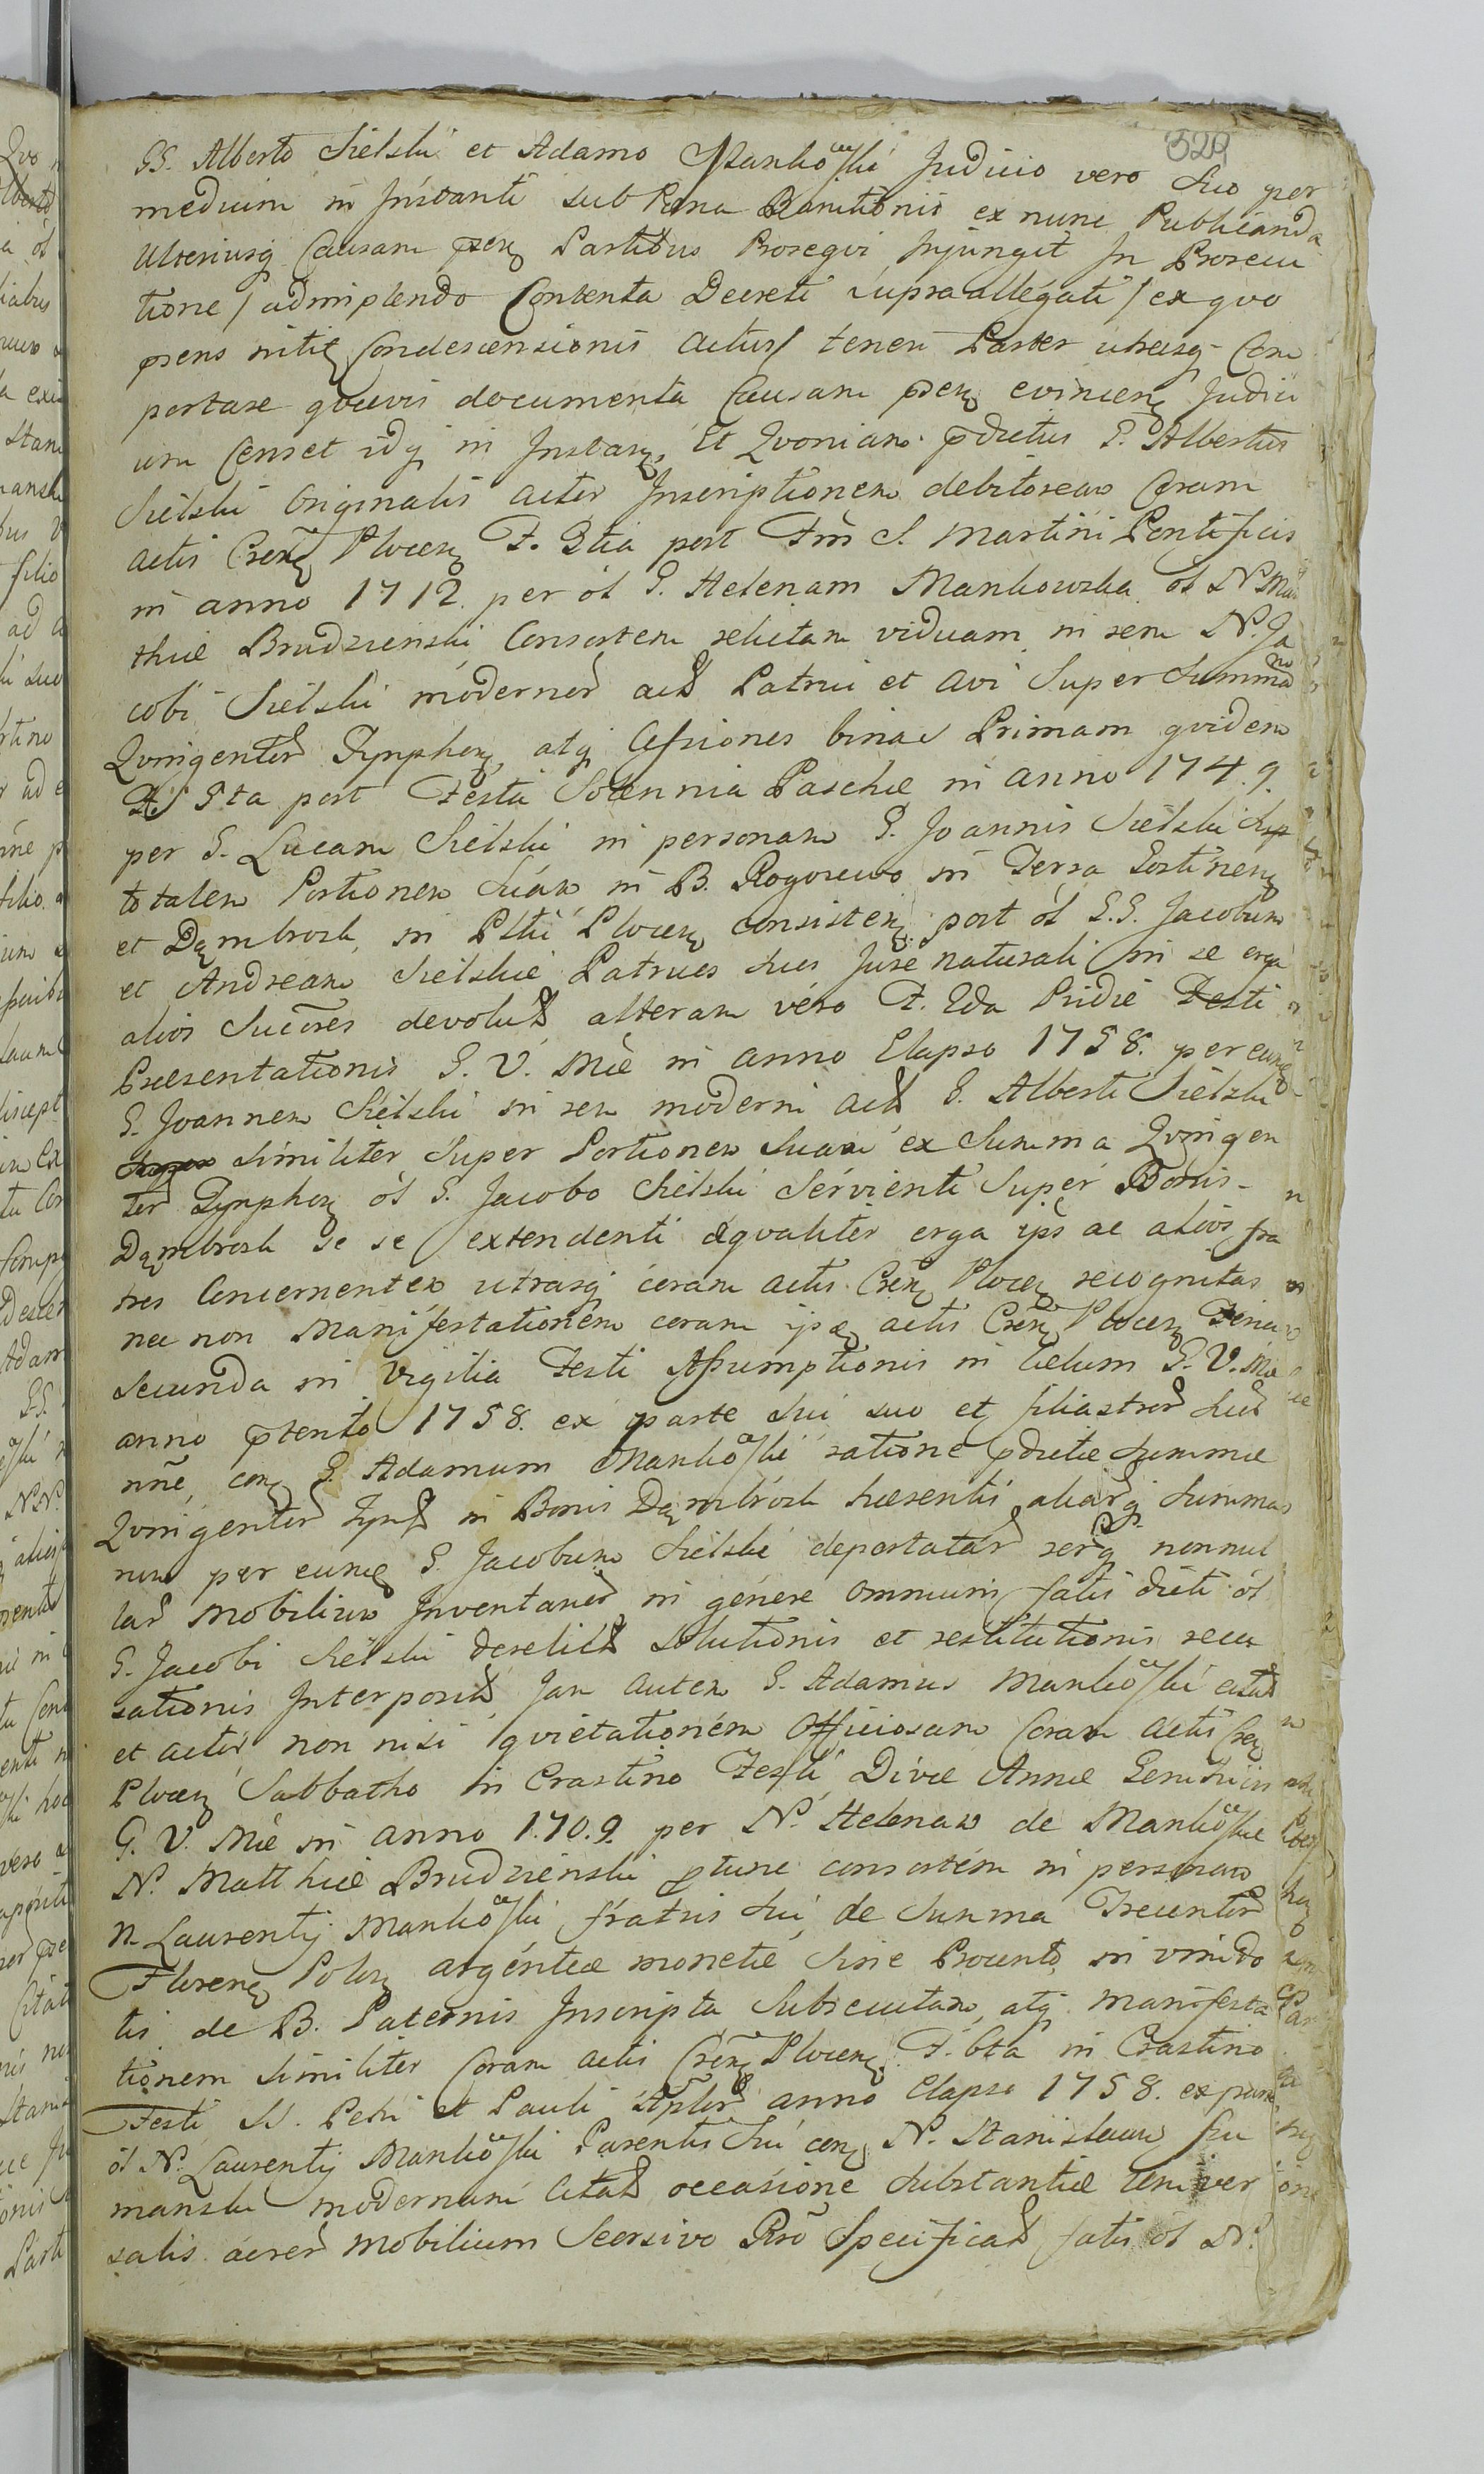 329
GG. Alberto Sielski et Adamo Mankowski Judicio vero Suo per
medium in Instanti sub Pœna Banitionis ex nunc Publicanda
Ulteriusq Causam pñ Partibus Prosequi Injungit In Prosecu
tione / adimplendo Contenta Decreti supra allegati / ex quo
pñs initiu Condescensionis actus / teneri Partes utrasq Com
portare quævis documenta Causam pñ evincen Judici
um Censet idq in Instan, Et Quoniam pdictus G. Albertus
Sielski Originalis actor Inscriptionem debitoream Coram
actis Cren Plocen F. 3tia post Ftm S. Martini Pontificis
in anno 1712. per ol G. Helenam Mankowska ol N. Mat
thiæ Brudzienski Consortem relictam viduam in rem N. Ja
cobi Sielski modernor act Patrui et avi Super Summa
Quingentor Tynphon, atq Cessiones binas Primam quidem
F. 5ta post Festa Solennia Paschæ in anno 1749.
per G. Lucam Sielski in personam G. Joannis Sielski Sup
totalem Portionem Suam in B. Rogorewo in Terra Gostinen
et Dąmbrosk in Pltu Plocen consisten post ol G.G. Jacobum
et Andream Sielskie Patruos suos Jure naturali in se erga
alios Succores devolut alteram vero F. 2da Pridie Festi
Præsentationis G. V. Mæ in anno Elapso 1758. per eund
G. Joannem Sielski in rem moderni act G. Alberti Sielski
similiter Super Portionem Suam ex Summa Quingen
tor Tynphon ol G. Jacobo Sielski Servienti Super Bonis
Dąmbrosk se se extendenti æqualiter erga ips ac alios fra
tres Concernentem utrasq coram actis Cren Plocen recognitas
nec non Manifestationem coram ips actis Cren Plocen Feria
secunda in Vigilia Festi Assumptionis in Cœlum G. V. Mæ
anno ptento 1758. ex parte sui suo et filiastror suor
nñe, con G. Adamum Mankowski ratione pdictæ Summæ
Quingentor Tynf in Bonis Dąmbrosk hærentis aliarq Summa
rum per eund G. Jacobum Sielski deportatar rerq nonnul
lar Mobilium Inventarior in genere omnium fatis dicti ol
G. Jacobi Sielski derelict solutionis et restitutionis recu
sationis Interposit Jam autem G. Adamus Mankowski citat
et actor non nisi quietationem Officiosam Coram actis Cren
Plocen Sabbatho in Crastino Festi Divæ Annæ Genitricis
G. V. Mæ in anno 1709. per N. Helenam de Mankowskie
N. Matthiæ Brudzienski ptunc consortem in personam
N. Laurentij Mankowski fratris sui de Summa Trecentor
Floren Polon argenteæ monetæ sine Procento in vim do
tis de B. Paternis Inscripta Subsecutam, atq Manifesta
tionem similiter Coram actis Cren Plocen F. 6ta in Crastino
Festi SS. Petri et Pauli Aplor anno Elapso 1758. ex parte
ol N. Laurentij Mankowski Parentis sui con N. Stanislaum Fu
manski modernum Citat occasione substantiæ univer
salis æreor Mobilium Seorsivo Rro Specificat fatis ol N.